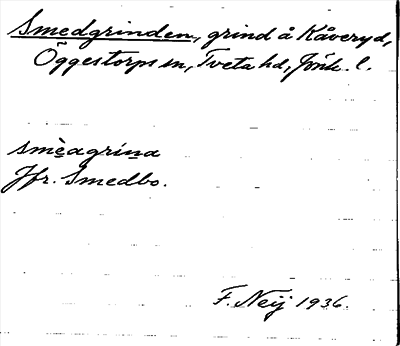 Smedgrinden, grind å Kåveryd,
Öggestorps sn, Tveta hd, Jönk. l.
smèagrína
Jfr. Smedbo.
F. Neij 1936.